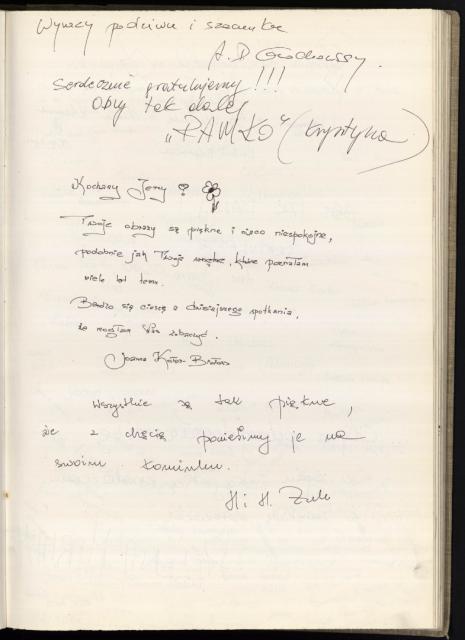 Wyrazy podziwu i szacunku
A. D. Grochowscy.
Serdecznie gratulujemy!!!
Oby tak dalej
„PAMKO” (Krystyna)
Kochany Jerzy
Twoje obrazy są piękne i nieco niespokojne,
podobnie jak Twoje które poznałam
wiele lat temu.
Bardzo się cieszę z dzisiejszego spotkania,
że mogłam Was zobaczyć.
Joanna
Wszystkie są tak piękne,
że z chęcią powiesimy je na
swoim kominku.
H i H.